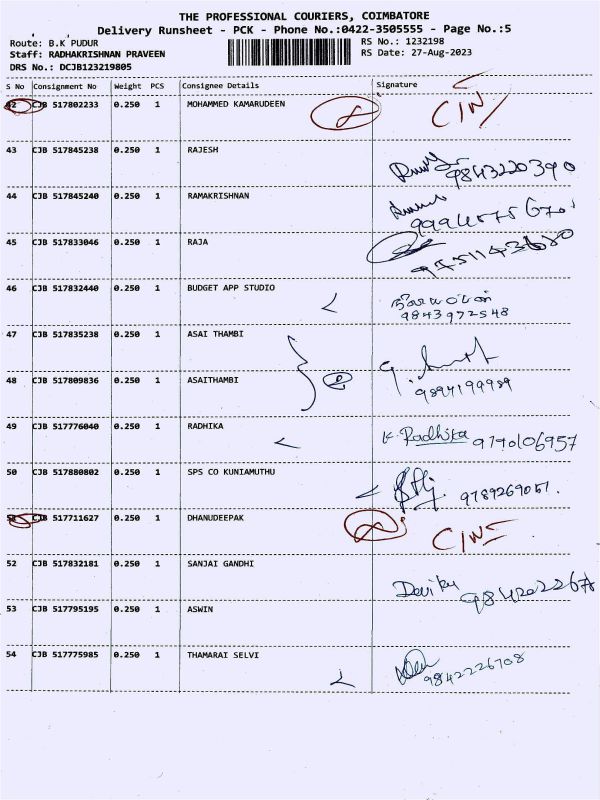 THE PROFESSIONAL COURIERS, COIMBATORE
Delivery Runsheet - PCK - Phone No.:0422-3505555 - Page No.:5
Route: B.K PUDUR
RS No.: 1232198
Staff: RADHAKRISHNAN PRAVEEN
RS Date: 27-Aug-2023
DRS No.: DCJB123219805
S No Consignment No Weight PCS Consignee Details Signature
42 CJB 517802233 0.250 1 MOHAMMED KAMARUDEEN
43 CJB 517845238 0.250 1 RAJESH 9843220390
44 CJB 517845240 0.250 1 RAMAKRISHNAN
45 CJB 517833046 0.250 1 RAJA
46 CJB 517832440 0.250 1 BUDGET APP STUDIO
9843972548
47 CJB 517835238 0.250 1 ASAI THAMBI
48 CJB 517809836 0.250 1 ASAITHAMBI 9894199989
49 CJB 517776040 0.250 1 RADHIKA K. Radhika 9790106957
50 CJB 517880802 0.250 1 SPS CO KUNIAMUTHU
CJB 517711627 0.250 1 DHANUDEEPAK
52 CJB 517832181 0.250 1 SANJAI GANDHI
53 CJB 517795195 0.250 1 ASWIN
54 CJB 517775985 0.250 1 THAMARAI SELVI 9842226708